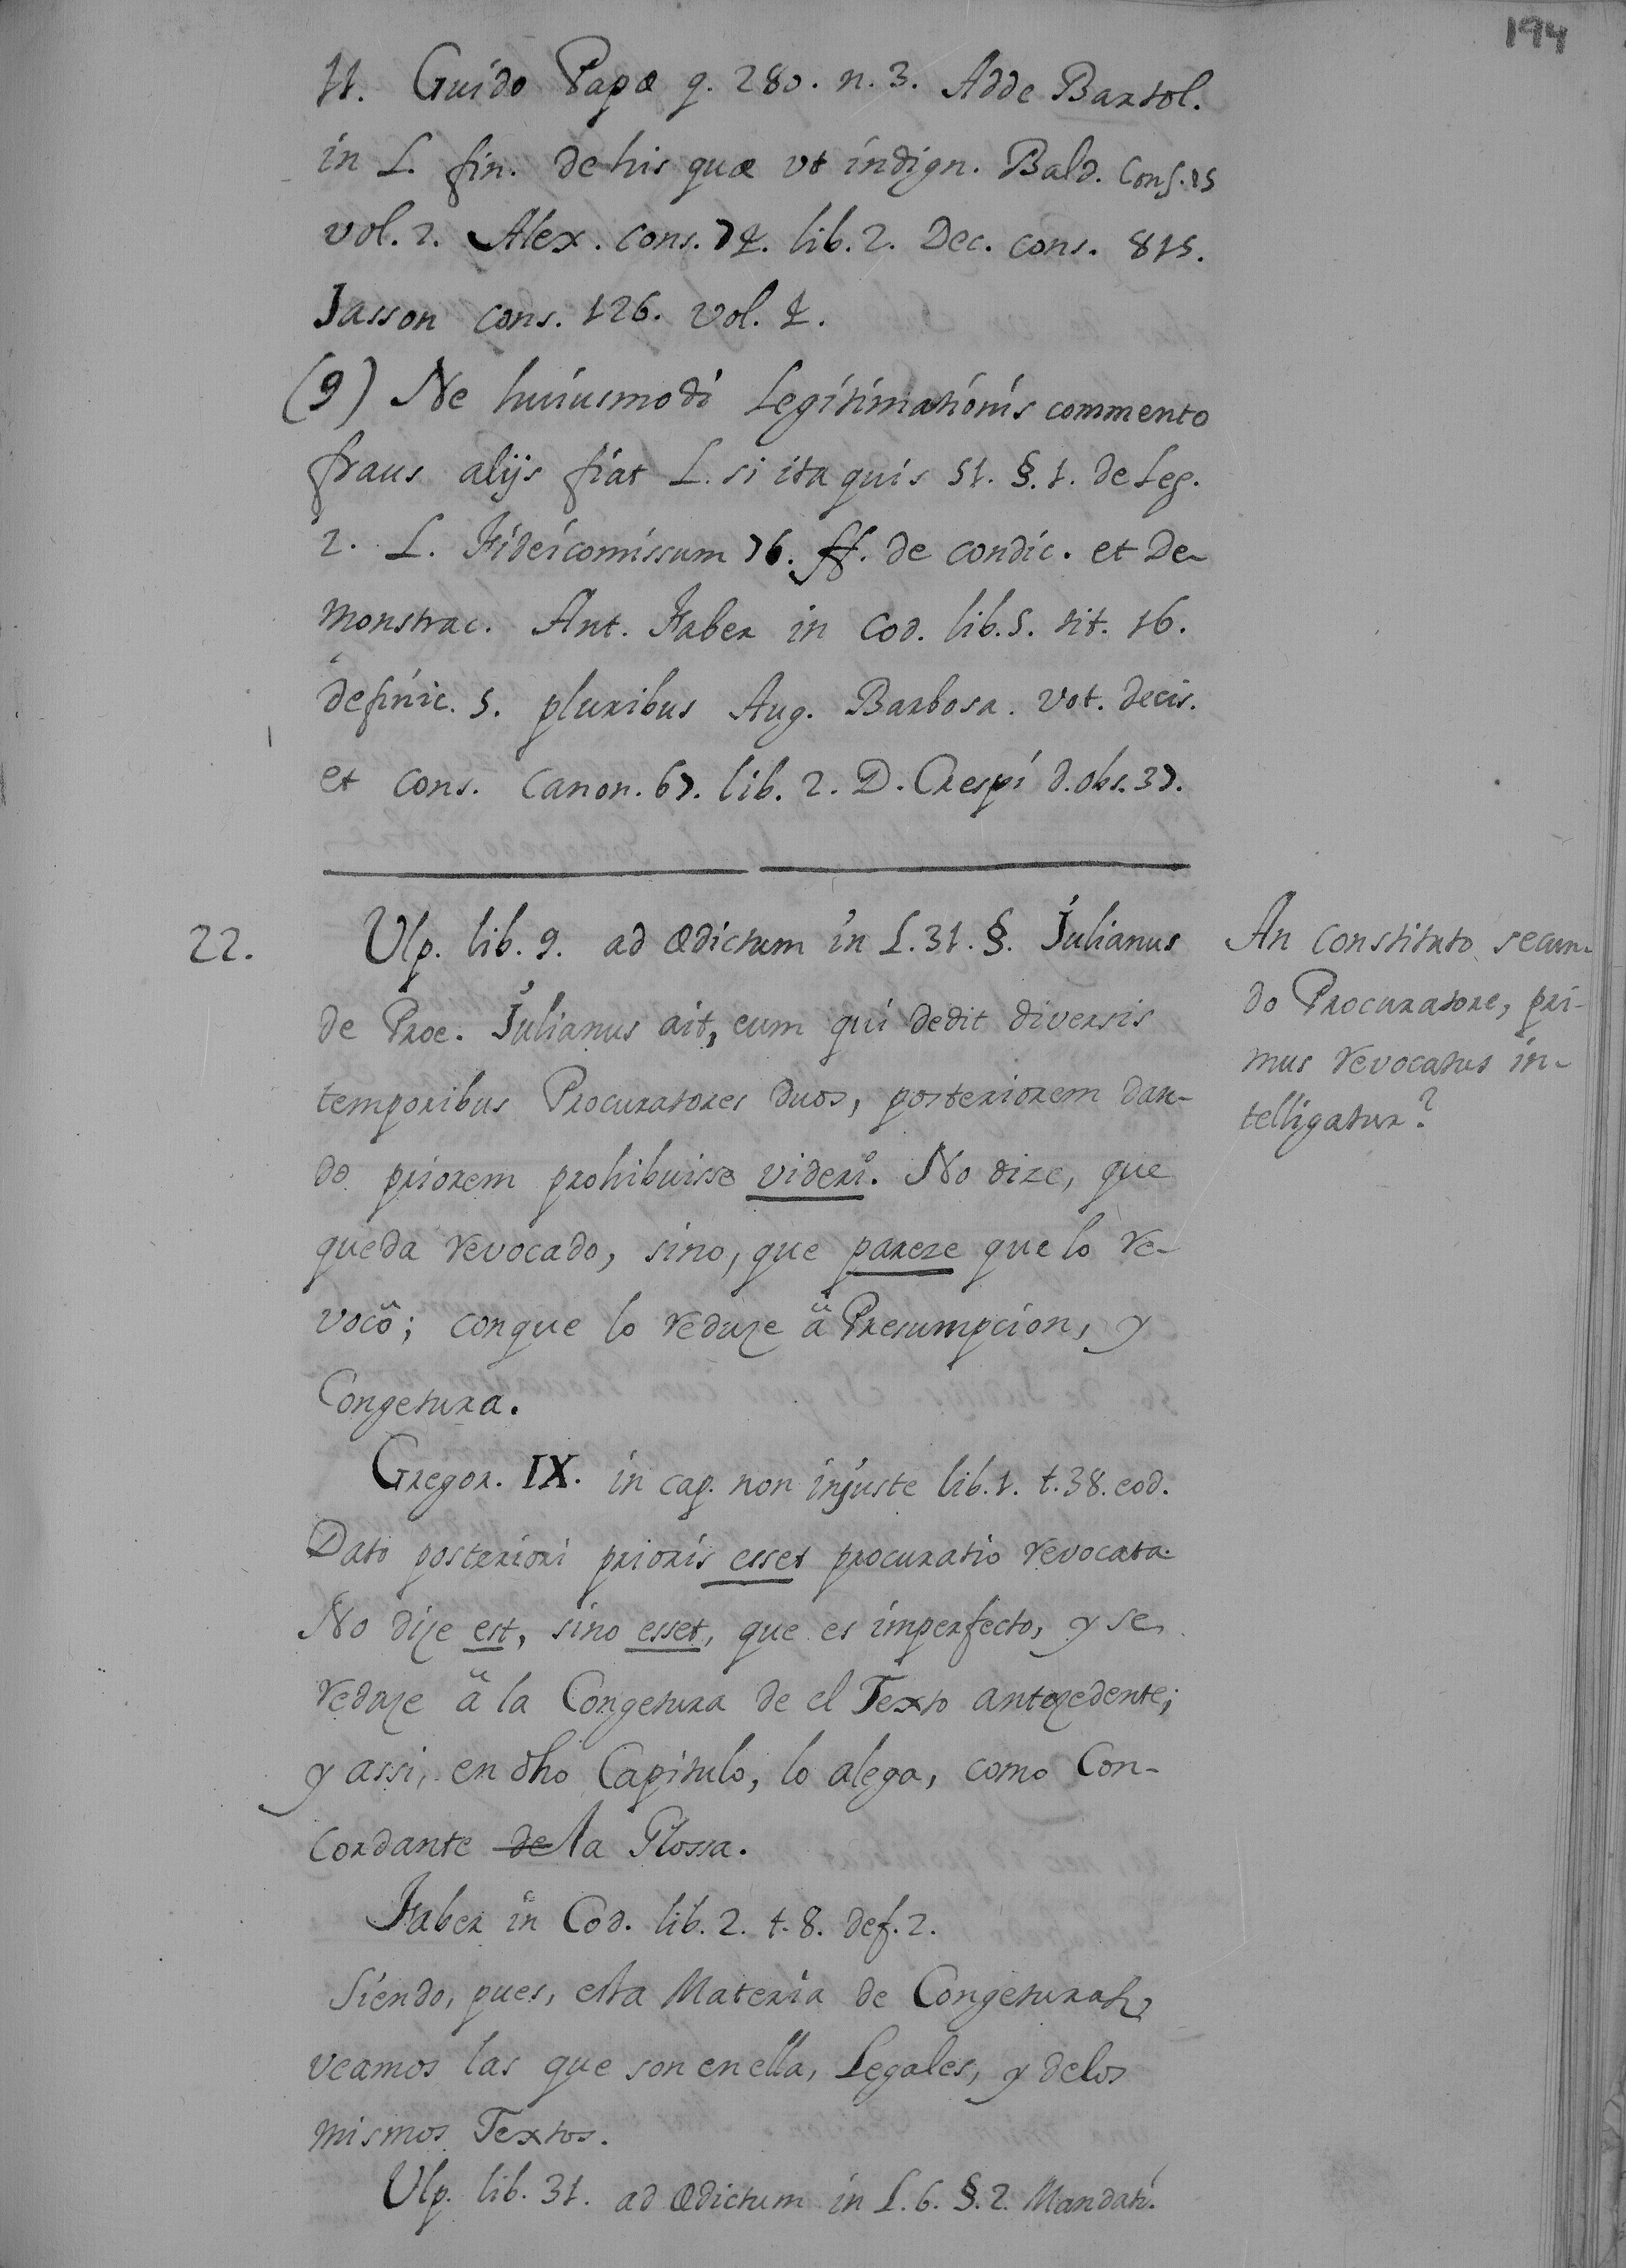 194
11. Guido Papæ q. 280. n. 3. Adde Bartol.
in L. fin. de his quæ vt indign. Bald. Cons. 15
vol. 2. Alex. cons. 74. lib. 2. Dec. cons. 815.
Jasson cons. 126. vol. 4.
(9) Ne huiusmodi Legitimationis commento
fraus alijs fiat L. si ita quis 51. §. 1. de Leg.
2. L. Fideicomissum 76. ff. de condic. et De-
monstrac. Ant. Faber in Cod. lib. 5. tit. 16.
definic. 5. pluribus Aug. Barbosa. vot. decis.
et cons. Canon. 67. lib. 2. D. Crespi d. obs. 37.
22. Ulp. lib. 9. ad ædictum in L. 31. §. Julianus
de Proc. Julianus ait, eum qui dedit diversis
temporibus Procuratores duos, posteriorem dan-
do priorem prohibuisse videri. No dize, que
queda revocado, sino, que pareze que lo re-
vocô; conque lo reduze â Presumpcion, y
Congetura.
An constituto secun-
do Procuratore, pri-
mus revocatus in-
telligatur?
Gregor. IX. in cap. non injuste lib. 1. t. 38. eod.
Dato posteriori prioris esset procuratio revocata.
No dize est, sino esset, que es imperfecto, y se
reduze â la Congetura de el Texto antezedente;
y assi, en dho Capitulo, lo alega, como Con-
cordante de la Glossa.
Faber in Cod. lib. 2. t. 8. def. 2.
Siendo, pues, esta Materia de Congeturas,
veamos las que son en ella, Legales, y de los
mismos Textos.
Ulp. lib. 31. ad ædictum in L. 6. §. 2. Mandati.